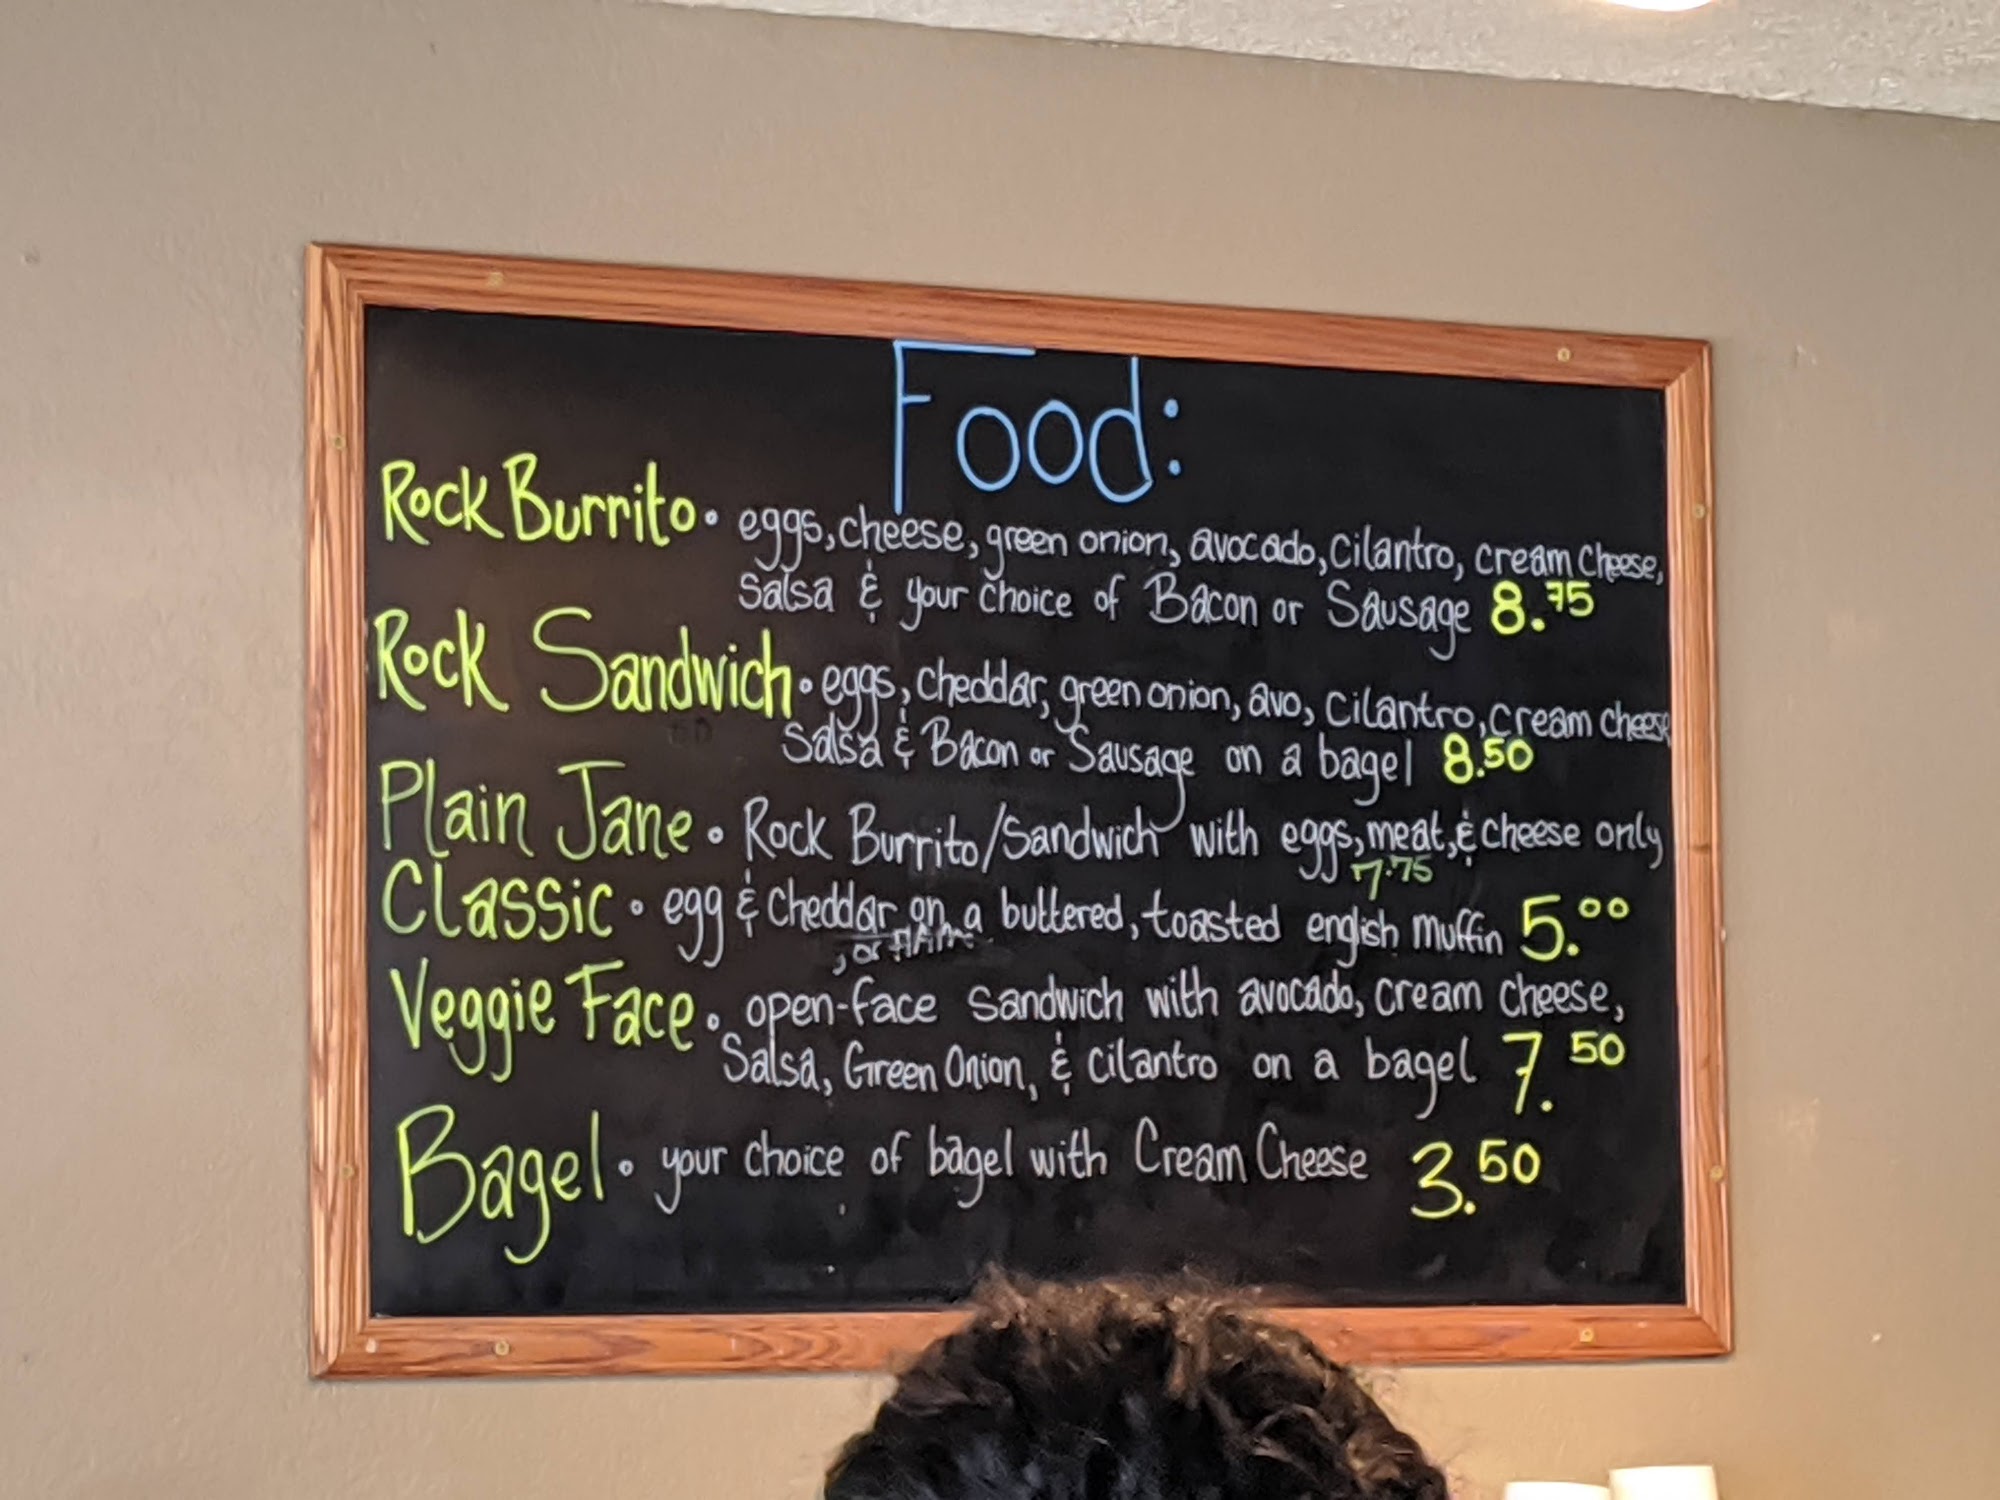 Food:
Rock Burrito • eggs, cheese, green onion, avocado, cilantro, cream cheese,
Salsa & your choice of Bacon or Sausage 8.75
Rock Sandwich • eggs, cheddar, green onion, avo, cilantro, cream cheese
Salsa & Bacon or Sausage on a bagel 8.50
Plain Jane • Rock Burrito/Sandwich with eggs, meat, & cheese only
7.75
Classic • egg & cheddar on a buttered, toasted english muffin 5.00
, or HAM
Veggie Face • open-face sandwich with avocado, cream cheese,
Salsa, Green Onion, & cilantro on a bagel 7.50
Bagel • your choice of bagel with Cream Cheese 3.50